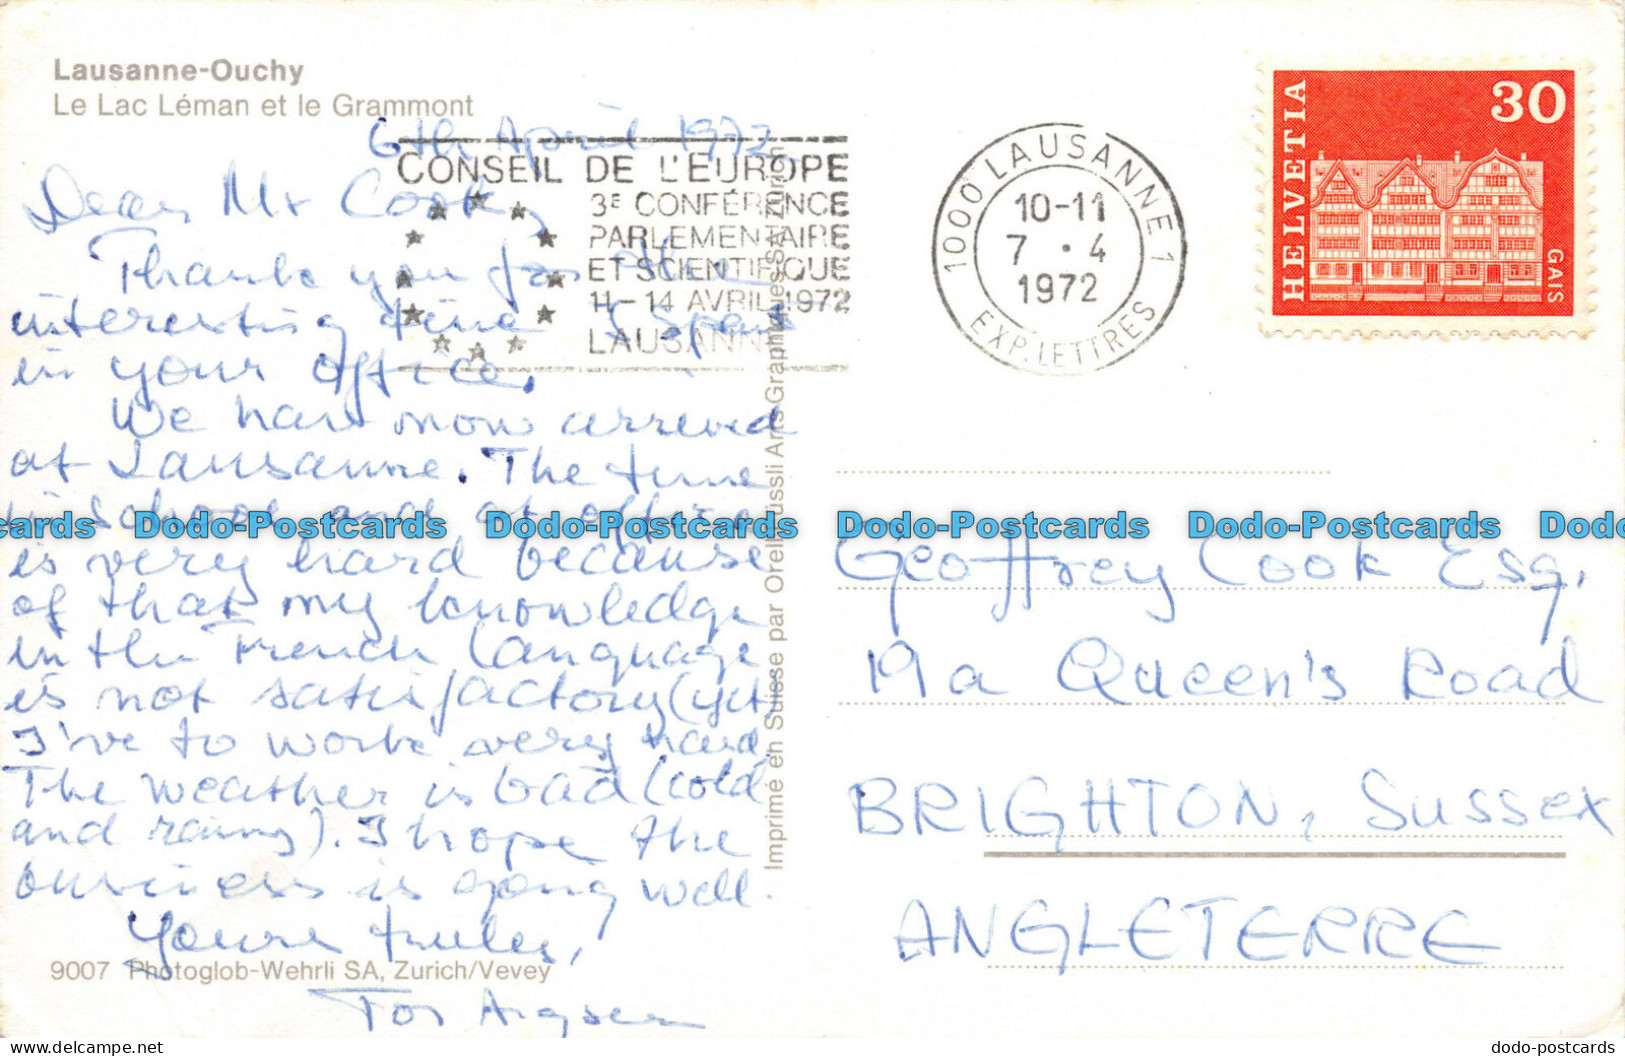 Lausanne-Ouchy
Le Lac Léman et le Grammont
6th April 1972
Dear Mr Cook,
Thank you for the
interesting time I spent
in your office.
We have now arrived
at Lausanne. The time
in school and at office
is very hard because
of that my knowledge
in the French language
is not satisfactory (yet)
I've to work very hard.
The weather is bad (cold
and rainy). I hope the
business is going well.
Yours truly,
9007 Photoglob-Wehrli SA, Zurich/Vevey
Imprimé en Suisse par Orell Füssli Arts Graphiques SA Zurich
CONSEIL DE L'EUROPE
3E CONFÉRENCE
PARLEMENTAIRE
ET SCIENTIFIQUE
11-14 AVRIL 1972
LAUSANNE
1000 LAUSANNE 1
10-11
7 . 4
1972
EXP. LETTRES
HELVETIA
30
GAIS
Geoffrey Cook Esq.
19a Queen's Road
BRIGHTON, Sussex
ANGLETERRE
Dodo-Postcards Dodo-Postcards Dodo-Postcards Dodo-Postcards
delcampe.net
dodo-postcards